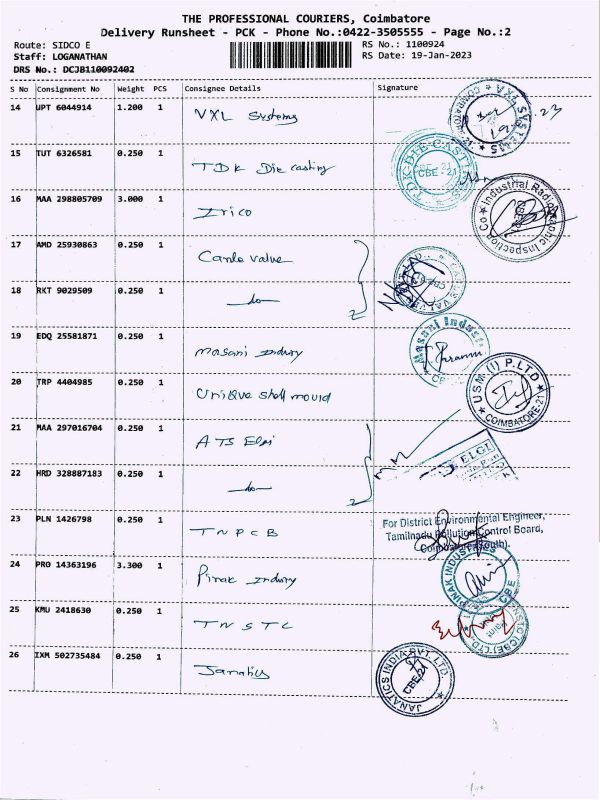 THE PROFESSIONAL COURIERS, Coimbatore
Delivery Runsheet - PCK - Phone No.:0422-3505555 - Page No.:2
Route: SIDCO E
RS No.: 1100924
Staff: LOGANATHAN
RS Date: 19-Jan-2023
DRS No.: DCJB110092402
S No Consignment No Weight PCS Consignee Details Signature
14 UPT 6044914 1.200 1 VXL Systems
VXL SYSTEMS
15 TUT 6326581 0.250 1 TDK Die casting
TDK DIE CASTING CBE - 21
16 MAA 298805709 3.000 1 Irico
Industrial Radiographic Inspection Co
17 AMD 25930863 0.250 1
18 RKT 9029509 0.250 1 do
19 EDQ 25581871 0.250 1 Masani Indusry
Masani Indust
20 TRP 4404985 0.250 1 Unique Shell mould
USM (I) P.LTD
COIMBATORE-21
21 MAA 297016704 0.250 1 ATS Elgi
ELGI
22 HRD 328887183 0.250 1 do
23 PLN 1426798 0.250 1 TNPCB
For District Environmental Engineer,
Tamilnadu Pollution Control Board,
Coimbatore (South).
24 PRO 14363196 3.300 1 Pinak Indusry
PINAK INDUSTRIES CBE
25 KMU 2418630 0.250 1 TNSTC
26 IXM 502735484 0.250 1 Janatics
JANATICS INDIA PVT. LTD.
CBE-21